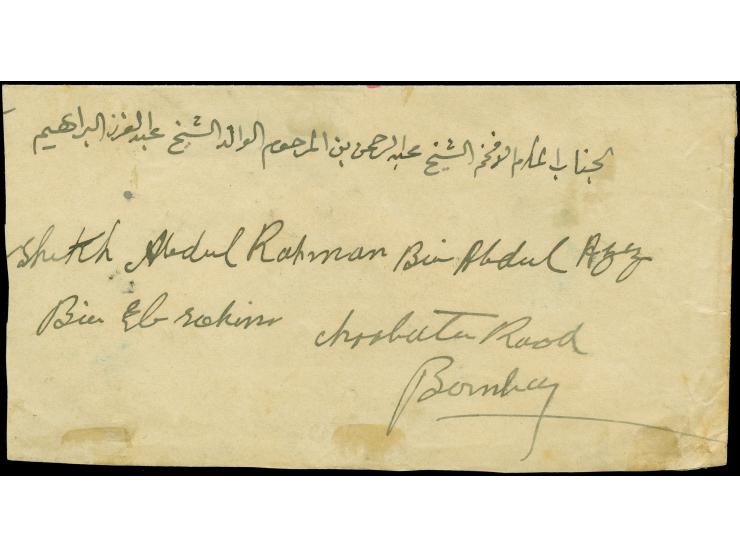 لجناب المكرم الافخم الشيخ عبدالرحمن بن المرحوم الوالد الشيخ عبدالعزيز البراهيم
Sheikh Abdul Rahman Bin Abdul Azez
Bin Ebrahim
Road
Bombay